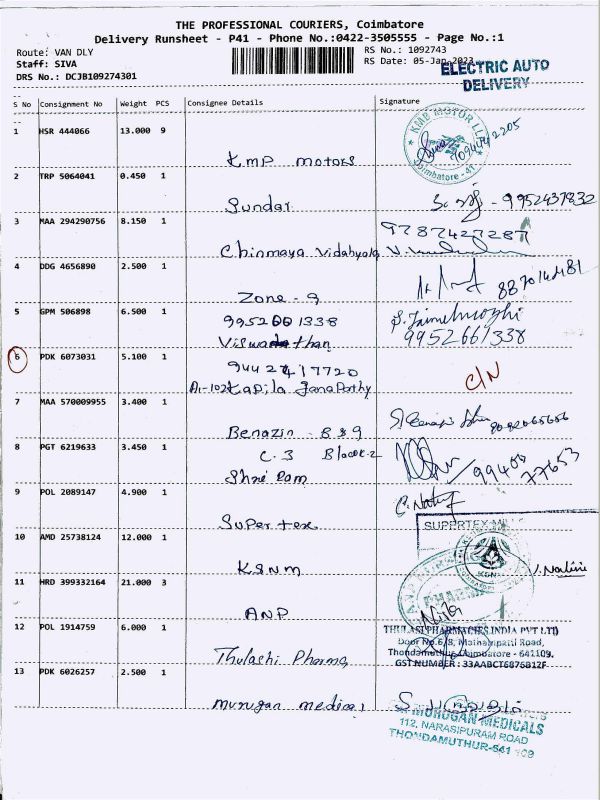 THE PROFESSIONAL COURIERS, Coimbatore
Delivery Runsheet - P41 - Phone No.:0422-3505555 - Page No.:1
Route: VAN DLY
RS No.: 1092743
Staff: SIVA
RS Date: 05-Jan-2023
DRS No.: DCJB109274301
ELECTRIC AUTO
DELIVERY
S No Consignment No Weight PCS Consignee Details Signature
1 HSR 444066 13.000 9
KMB MOTOR
Coimbatore - 41
KMP motors
2 TRP 5064041 0.450 1
Sundar
9952437832
3 MAA 294290756 8.150 1
9787427287
Chinmaya Vidahyala
4 DDG 4656890 2.500 1
8870142481
Zone - 9
5 GPM 506898 6.500 1
9952661338
9952661338
Viswanathan
6 PDK 6073031 5.100 1
9442417720
C/N
A1-102 Kapila Ganapathy
7 MAA 570009955 3.400 1
Benazin - B&9
C.3 Block-2
8 PGT 6219633 3.450 1
Shri Ram
9 POL 2089147 4.900 1
Super tex
SUPERTEX
10 AMD 25738124 12.000 1
KSNM
V. Nalini
11 HRD 399332164 21.000 3
PHARMA
ANP
12 POL 1914759 6.000 1
THULASI PHARMACIES INDIA PVT LTD
Door No.6/8, Mathampatti Road,
Thondamuthur, Coimbatore - 641109.
GST NUMBER : 33AABCT6876B1ZF
Thulashi Pharma
13 PDK 6026257 2.500 1
Murugan medical
MURUGAN MEDICALS
112, NARASIPURAM ROAD
THONDAMUTHUR-641 109